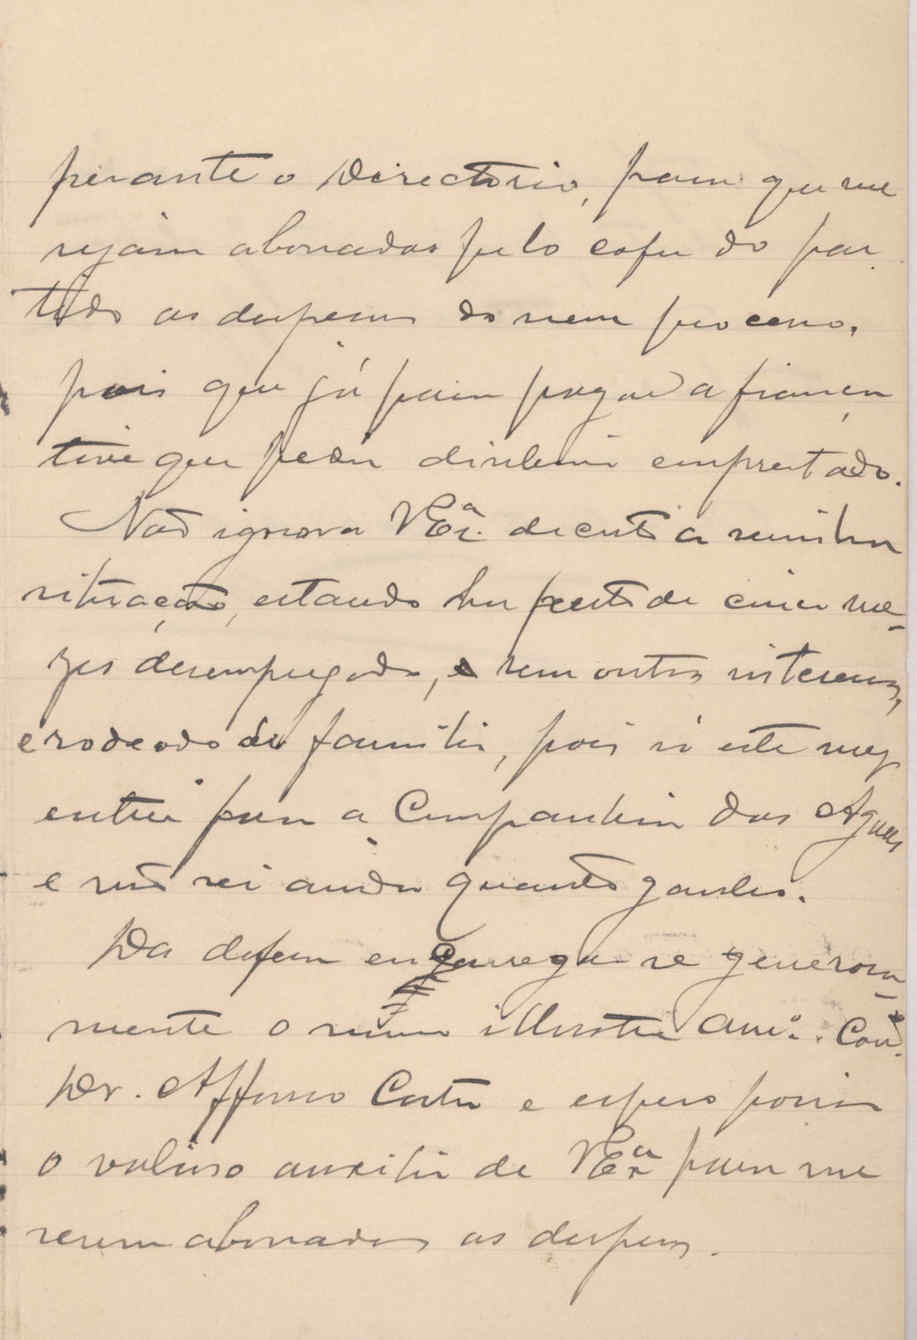 perante o Directorio, para que me
sejam abonadas pelo cofre do par
tido as despezas do meu processo,
pois que já para pagar a fiança
tive que pedir dinheiro emprestado.
Não ignora VExª. de certo a minha
situação, estando ha perto de cinco me-
zes desempregado, e sem outros interesses,
e rodeado de familia, pois só este mez
entrei para a Companhia das Aguas
e não sei ainda quanto ganho.
Da defeza encarrega-se generosa-
mente o nosso illustre Amº.
Dr. Affonso Costa e espero porisso
o valioso auxilio de VExª para me
serem abonadas as despezas.